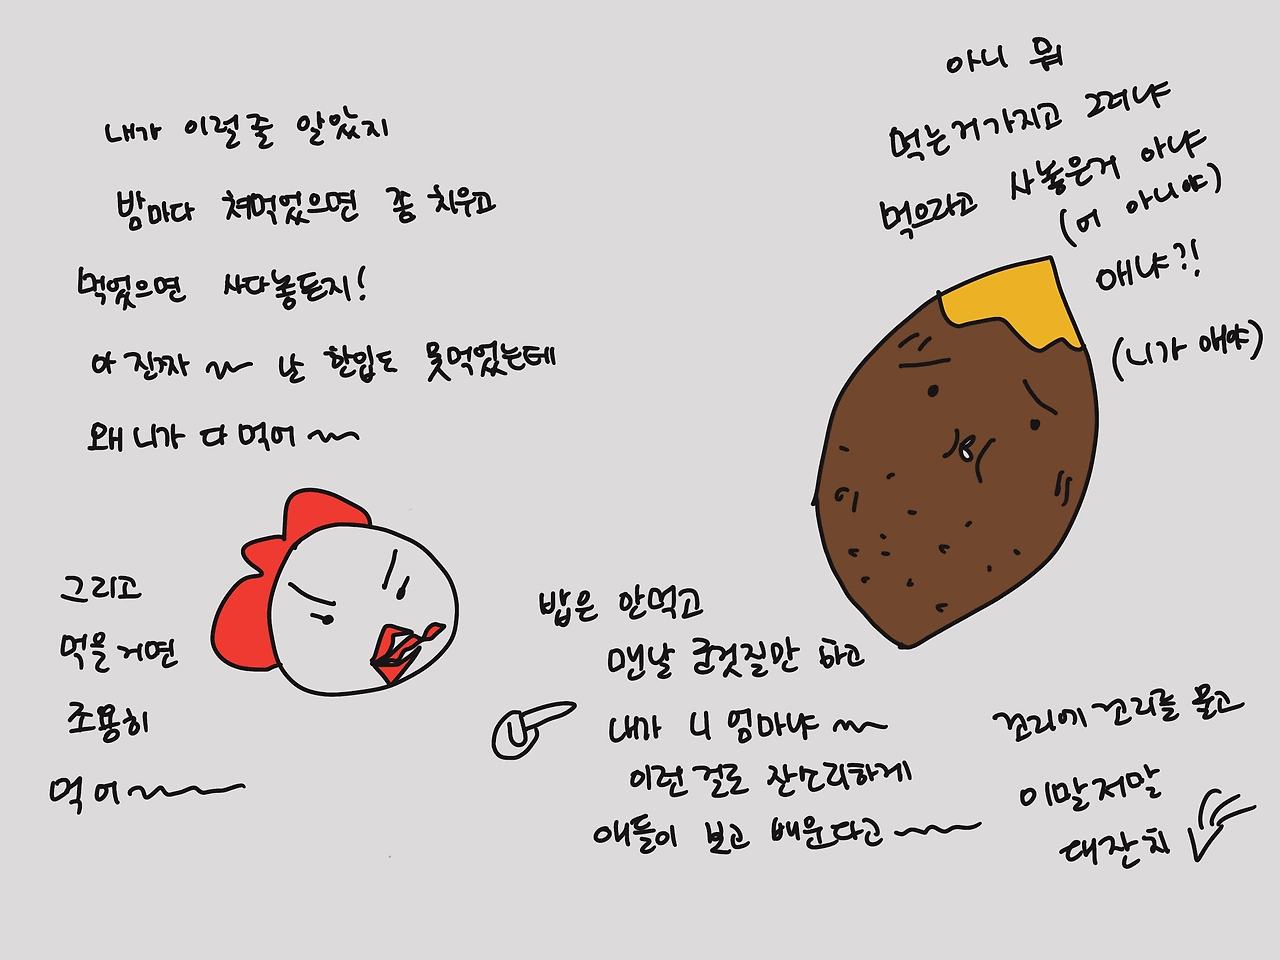 내가 이럴줄 알았지
밤마다 쳐먹었으면 좀 치우고
먹었으면 사다놓든지!
아 진짜~ 난 한입도 못먹었는데
왜 니가 다 먹어~
그리고
먹을거면
조용히
먹어~
아니 뭐
먹는거가지고 그러냐
먹으라고 사놓은거 아냐
(어 아니야)
애냐?!
(니가 애야)
밥은 안먹고
맨날 군것질만 하고
내가 니 엄마냐~
이런 걸로 잔소리하게
애들이 보고 배운다고~
꼬리에 꼬리를 물고
이말저말
대잔치